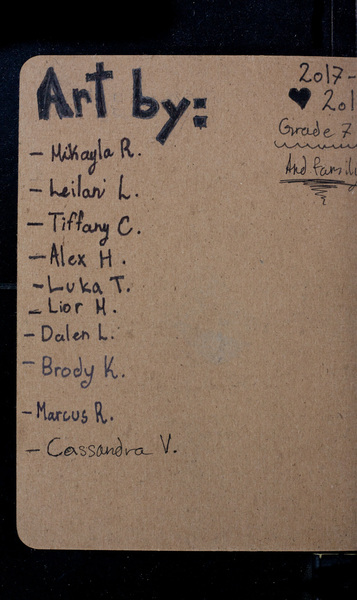 Art by:
- Mikayla R.
- Leilani L.
- Tiffany C.
- Alex H.
- Luka T.
- Lior M.
- Dalen L.
- Brody K.
- Marcus R.
- Cassandra V.
2017-
♥ 201
Grade 7
And family